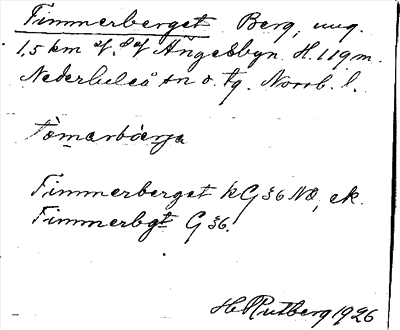 Timmerberget Berg, ung.
1,5 km af. S af Ängesbyn. H. 119 m.
Nederluleå sn o. tg. Norrb. l.
Timmerberget kG 36 NO, ek.
Timmerbgt G 36.
H. Rutberg 1926